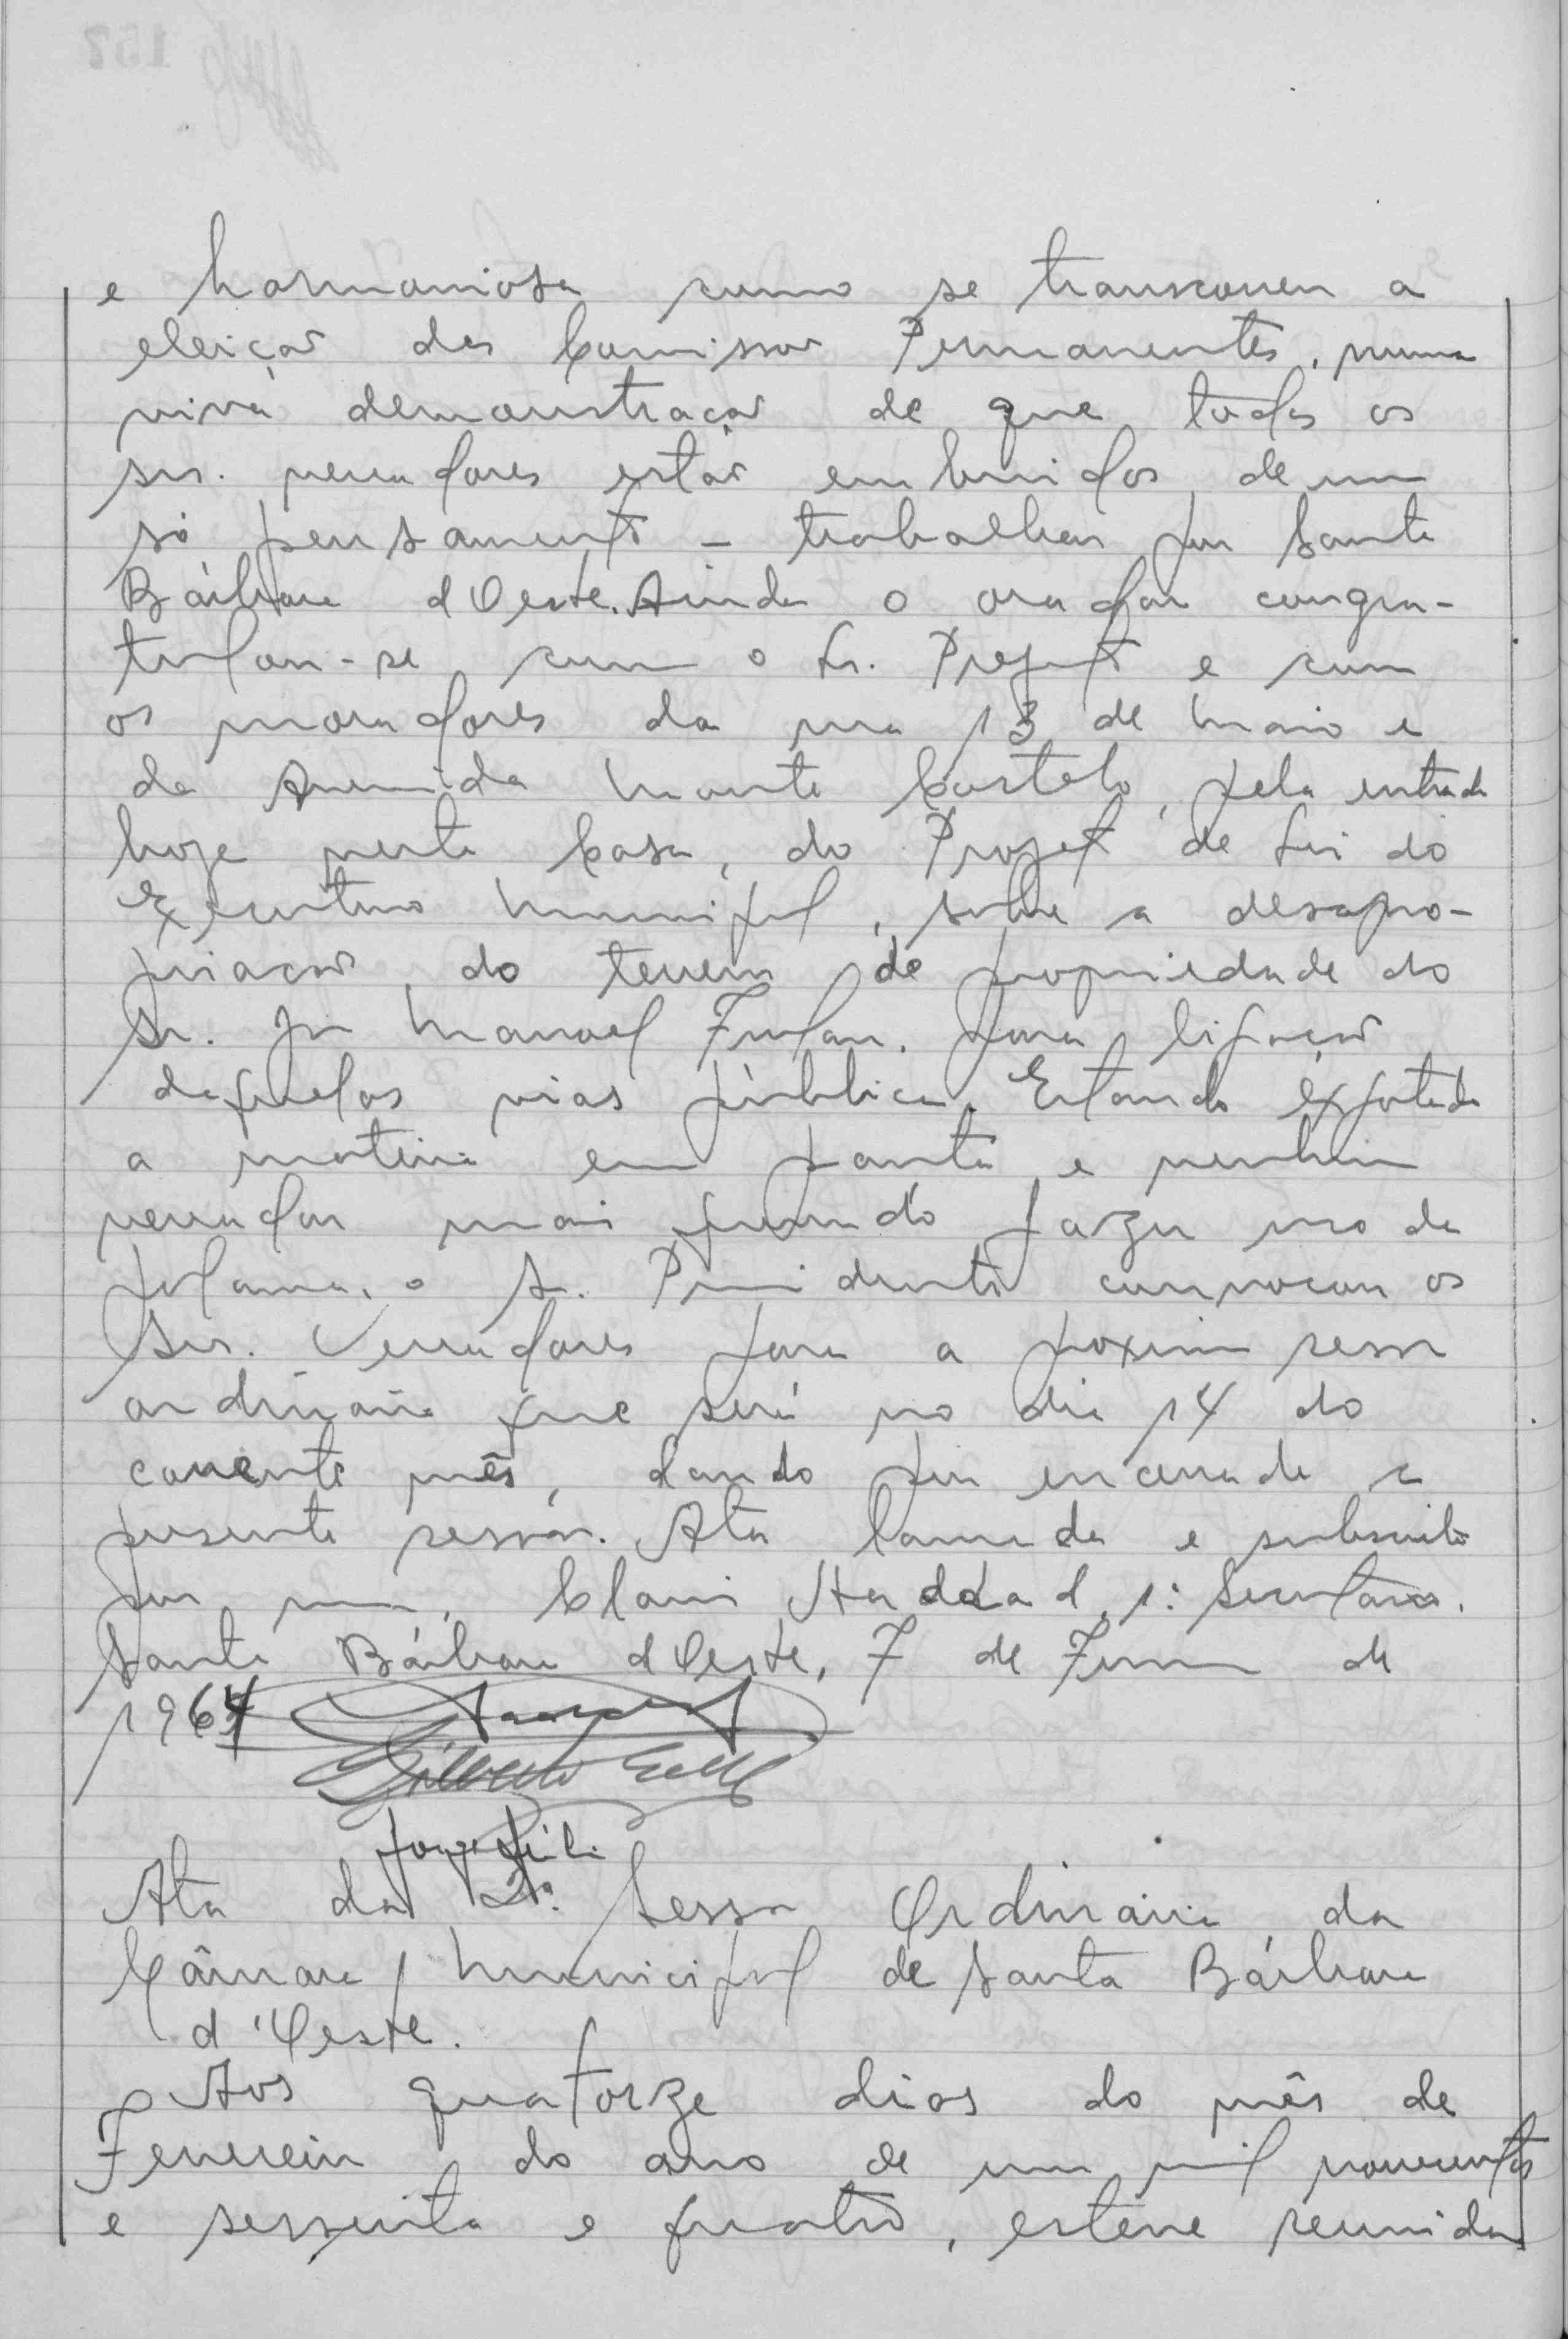 e harmoniosa como se transcorreu a
eleição das Comissões Permanentes, numa
viva demonstração de que todos os
srs. vereadores estão embuidos de um
só pensamento - trabalhar por Santa
Bárbara d'Oeste. Ainda o orador congra-
tulou-se com o Sr. Prefeito e com
os moradores da rua 13 de Maio e
da Avenida Monte Castelo, pela entrada
hoje nesta Casa, do Projeto de Lei do
Executivo Municipal, sobre a desapro-
priação do terreno de propriedade do
Sr. Manoel Furlan, para ligação
daquelas vias públicas. Estando esgotada
a matéria em pauta e nenhum
vereador mais querendo fazer uso da
palavra, o Sr. Presidente convocou os
Srs. Vereadores para a próxima sessão
ordinária que será no dia 14 do
corrente mês, dando por encerrada a
presente sessão. Ata lavrada e subscrita
por mim, Haddad, 1º Secretário.
Santa Bárbara d'Oeste, 7 de Fevereiro de
1964
Ata da 2ª Sessão Ordinária da
Câmara Municipal de Santa Bárbara
d'Oeste.
Aos quatorze dias do mês de
Fevereiro do ano de um mil novecentos
e sessenta e quatro, esteve reunida